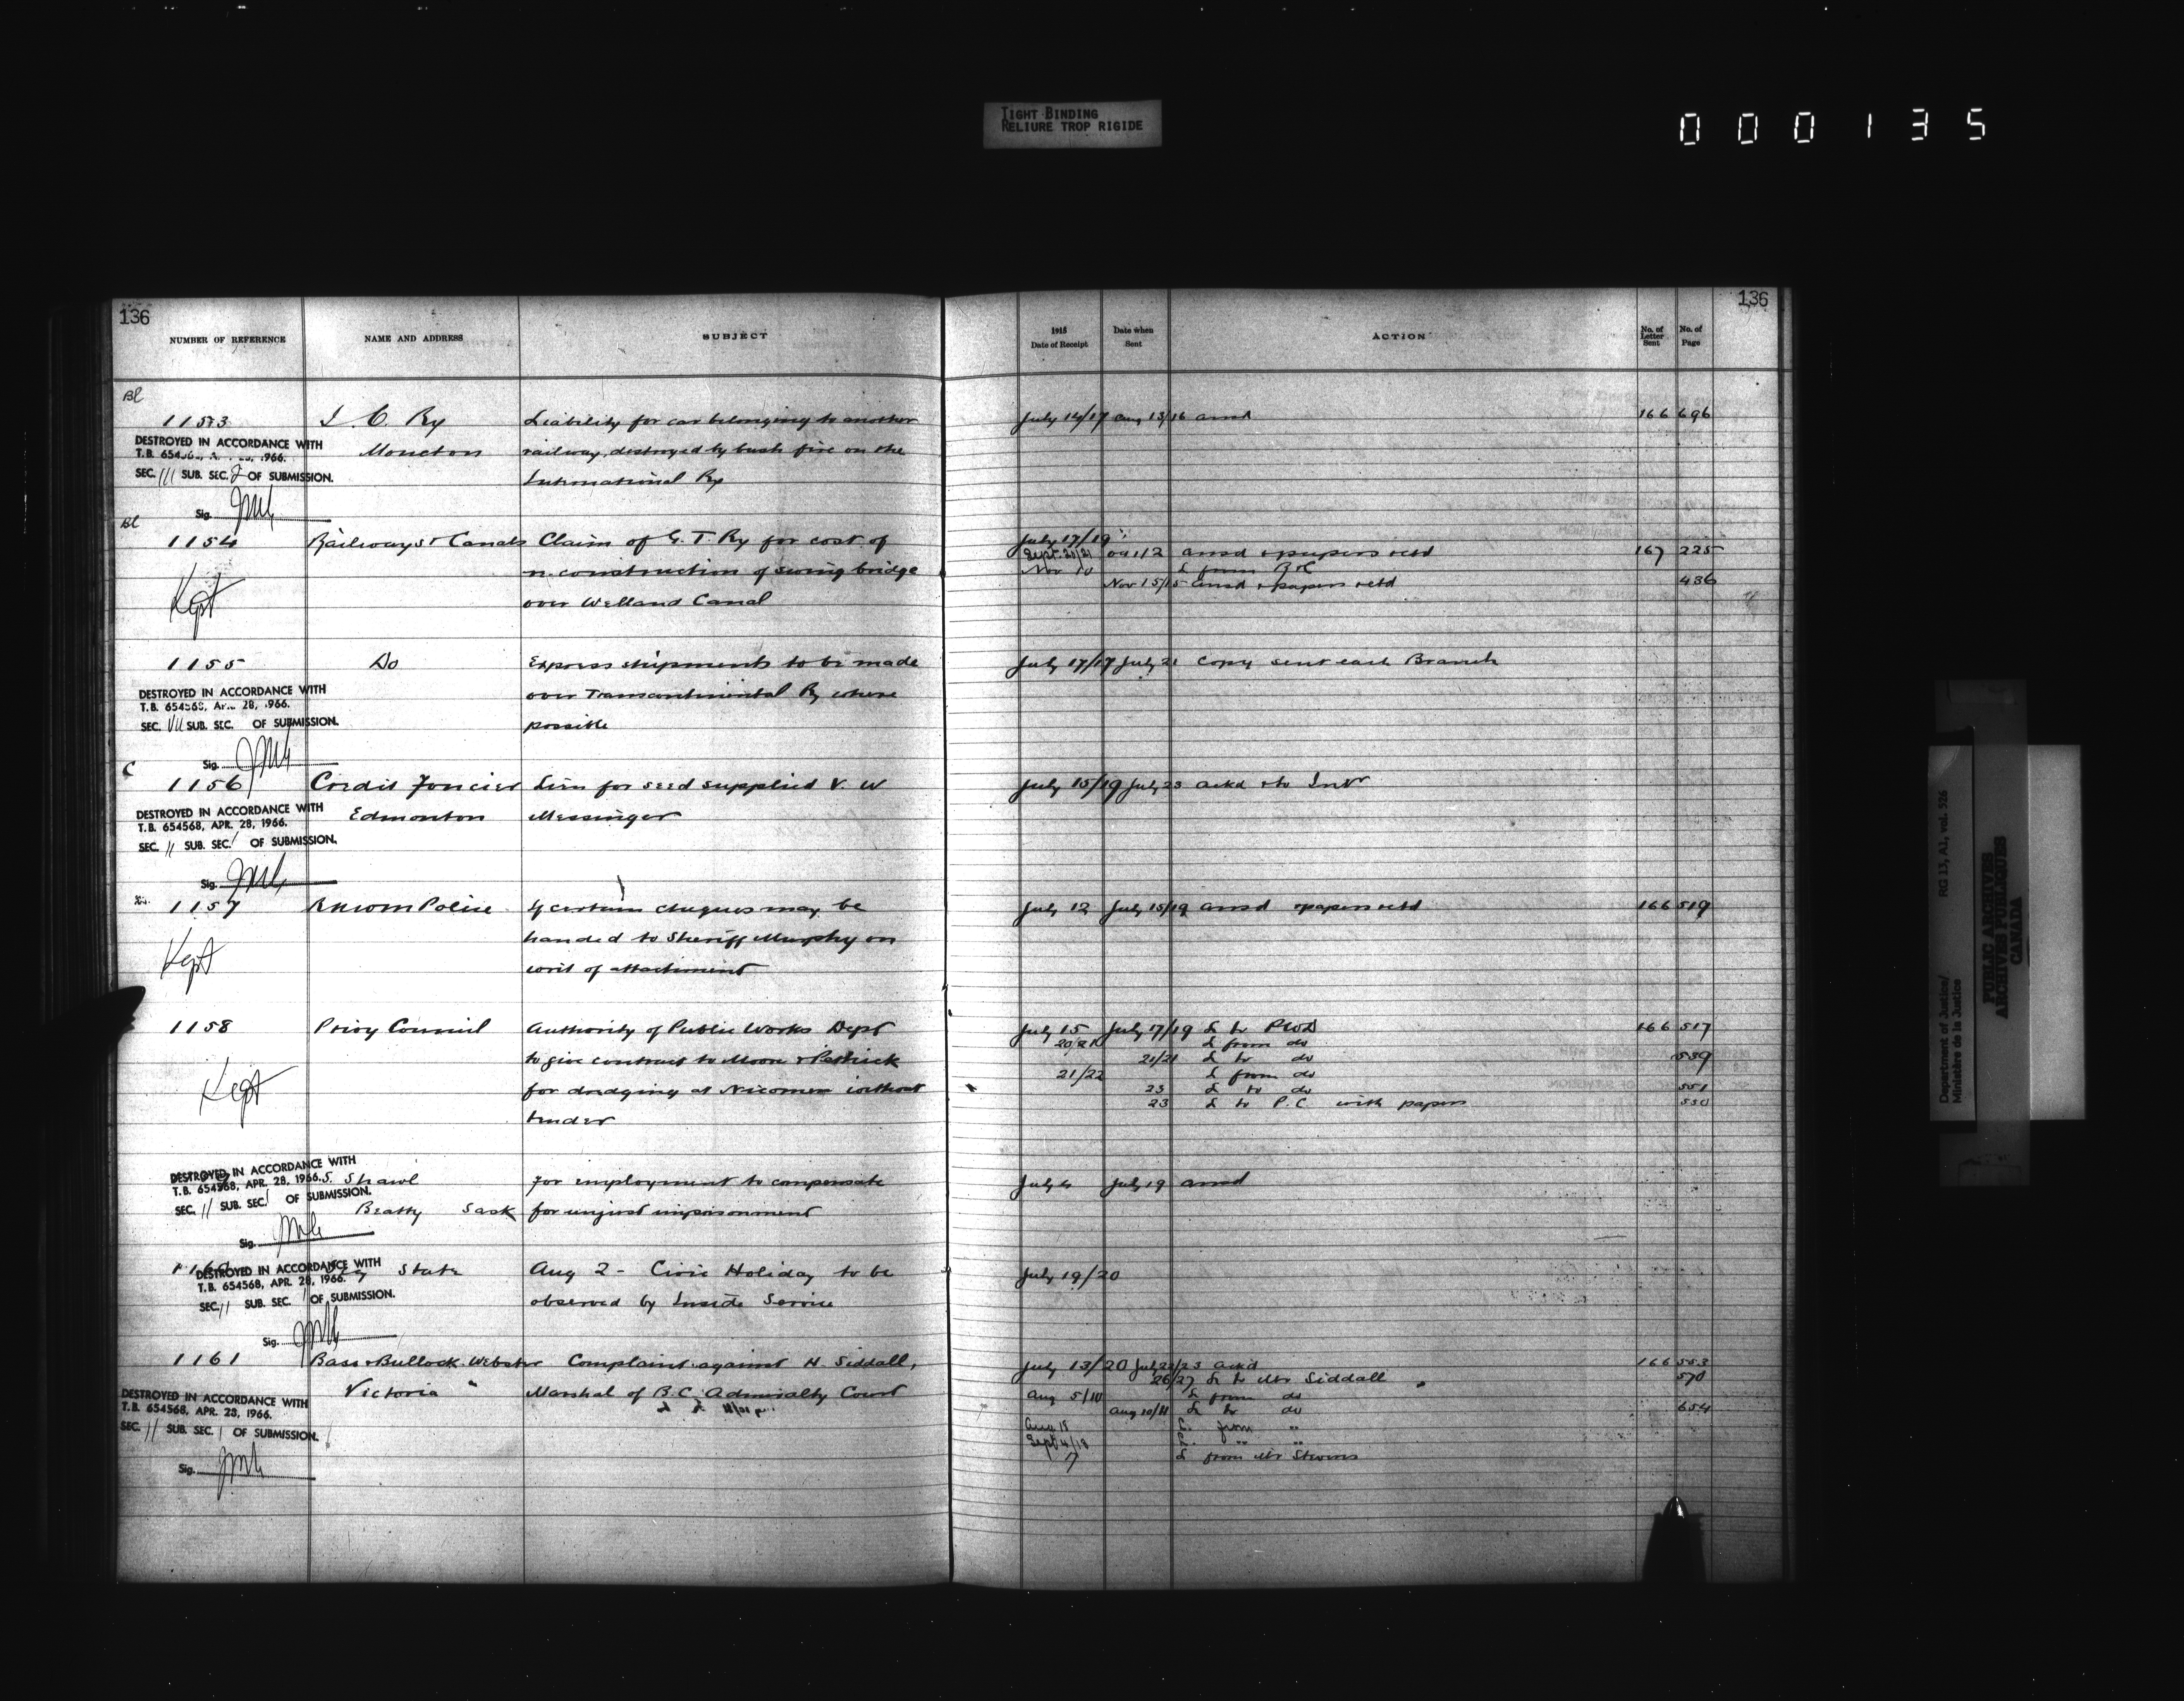 TIGHT BINDING
RELIURE TROP RIGIDE
000135
136
NUMBER OF REFERENCE NAME AND ADDRESS SUBJECT
Bl
1153 I. C. Ry Liability for car belonging to another
Moncton railway, destroyed by bush fire on the
International Ry
DESTROYED IN ACCORDANCE WITH
T.B. 1966.
SEC. III SUB. SEC. 2 OF SUBMISSION.
Sig.
Bl
1154 Railways & Canals Claim of G. T. Ry for cost of
construction of swing bridge
over Welland Canal
Kept
1155 Do Express shipments to be made
over Transcontinental Ry where
possible
DESTROYED IN ACCORDANCE WITH
T.B. 654568, 28, 1966.
SEC. VII SUB. SEC. OF SUBMISSION.
Sig.
C
1156 Credit Foncier Lien for seed supplied V. W
Edmonton Messinger
DESTROYED IN ACCORDANCE WITH
T.B. 654568, APR. 28, 1966.
SEC. II SUB. SEC. I OF SUBMISSION.
Sig.
1157 RNWM Police If certain cheques may be
handed to Sheriff Murphy on
writ of attachment
Kept
1158 Privy Council Authority of Public Works Dept
to give contract to Moore & Pethick
for dredging at Nicomen without
tender
Kept
S. Shawl For employment to compensate
Beatty Sask for unjust imprisonment
DESTROYED IN ACCORDANCE WITH
T.B. 654568, APR. 28, 1966.
SEC. II SUB. SEC. I OF SUBMISSION.
Sig.
State Aug 2 - Civic Holiday to be
observed by Inside Service
DESTROYED IN ACCORDANCE WITH
T.B. 654568, APR. 28, 1966.
SEC. II SUB. SEC. I OF SUBMISSION.
Sig.
1161 Bass & Bullock-Webster Complaint against H. Siddall,
Victoria Marshal of B.C. Admiralty Court
DESTROYED IN ACCORDANCE WITH
T.B. 654568, APR. 28, 1966.
SEC. II SUB. SEC. I OF SUBMISSION.
Sig.
136
1915 Date of Receipt Date when Sent ACTION No. of Letter Sent No. of Page
July 14/17 Aug 13/16 ansd 166 696
July 17/19
Sept. 20/21 Oct 12 ansd & papers retd 167 225
Nov 10 L from R&C
Nov 15/15 ansd & papers retd 436
July 17/17 July 21 Copy sent each Branch
July 15/19 July 23 ackd & to Intr
July 12 July 15/19 ansd & papers retd 166 519
July 15 July 17/19 L to PWD 166 517
20/21 L from do
21/21 L to do 539
21/22 L from do
23 L to do 551
23 L to P.C. with papers 550
July 4 July 19 ansd
July 19/20
July 13/20 July 22/23 ackd 166 553
26/27 L to Mr Siddall 570
Aug 5/10 L from do
Aug 10/11 L to do 654
Aug 18 L. from "
Sept 4/18 L. " "
17 L from Mr Stevens
Department of Justice/
Ministère de la Justice
RG 13, A1, vol. 526
PUBLIC ARCHIVES
ARCHIVES PUBLIQUES
CANADA